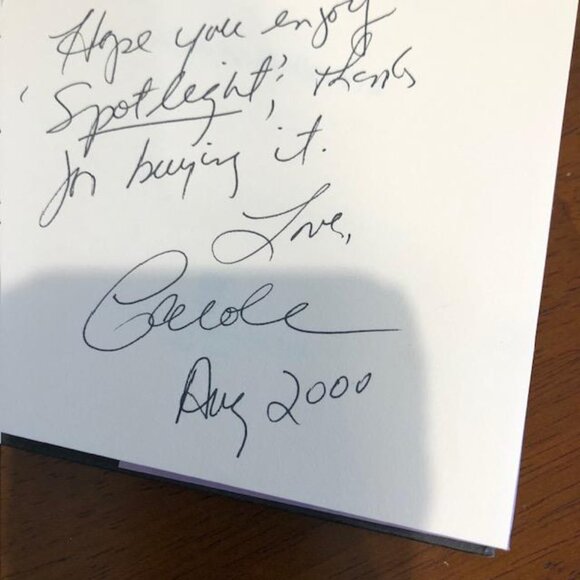 Hope you enjoy
'Spotlight', thanks
for buying it.
Love,
Carole
Aug 2000